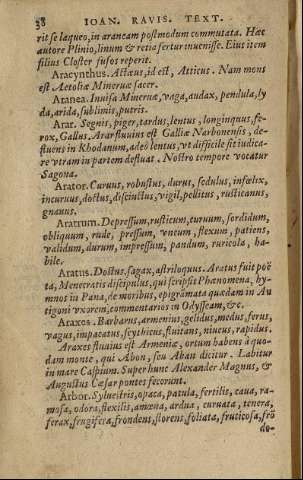 38 IOAN. RAVIS. TEXT.
rit se laqueo, in araneam postmodum commutata. Hac
autore Plinio, linum & retia fertur inuenisse. Eius item
filius Closter fusos reperit.
Aracynthus. Actæus, id est, Atticus. Nam mons
est Aetoliæ Mineruæ sacer.
Aranea. Inuisa Mineruæ, vaga, audax, pendula, ly
da, arida, sublimis, putris.
Arar. Segnis, piger, tardus, lentus, longinquus, fe-
rox, Gallus. Arar fluuius est Galliæ Narbonensis, de-
fluens in Rhodanum, adeo lentus, vt difficile sit iudica-
re vtram in partem defluat. Nostro tempore vocatur
Sagona.
Arator. Curuus, robustus, durus, sedulus, infœlix,
incuruus, doctus, discinctus, vigil, pellitus, rusticanus,
gnauus.
Aratrum. Depressum, rusticum, curuum, sordidum,
obliquum, rude, pressum, vncum, flexum, patiens,
validum, durum, impressum, pandum, ruricola, ha-
bile.
Aratus. Doctus, sagax, astriloquus. Aratus fuit poë
ta, Menecratis discipulus, qui scripsit Phænomena, hy-
mnos in Pana, de moribus, epigrāmata quædam in An
tigoni vxorem, commentarios in Odysseam, &c.
Araxes. Barbarus, armenius, gelidus, medus, ferus,
vagus, impacatus, scythicus, fluitans, niueus, rapidus.
Araxes fluuius est Armeniæ, ortum habens à quo-
dam monte, qui Abon, seu Aban dicitur. Labitur
in mare Caspium. Super hunc Alexander Magnus, &
Augustus Cæsar pontes fecerunt.
Arbor. Syluestris, opaca, patula, fertilis, caua, ra-
mosa, odora, flexilis, amœna, ardua, curuata, tenera,
ferax, frugifera, frondens, florens, foliata, fruticosa, frō
de-